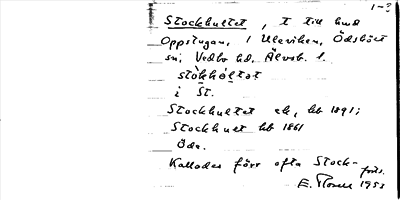 1-2
Stockhultet, t till hmd
Oppstugan, i Uleviken, Ödsköls
sn, Vedbo hd, Älvsb. l.
stòkhòltət
i St.
Stockhultet ek, hb 1891;
Stockhult hb 1861
Öde.
Kallades förr ofta Stock-
forts.
1953